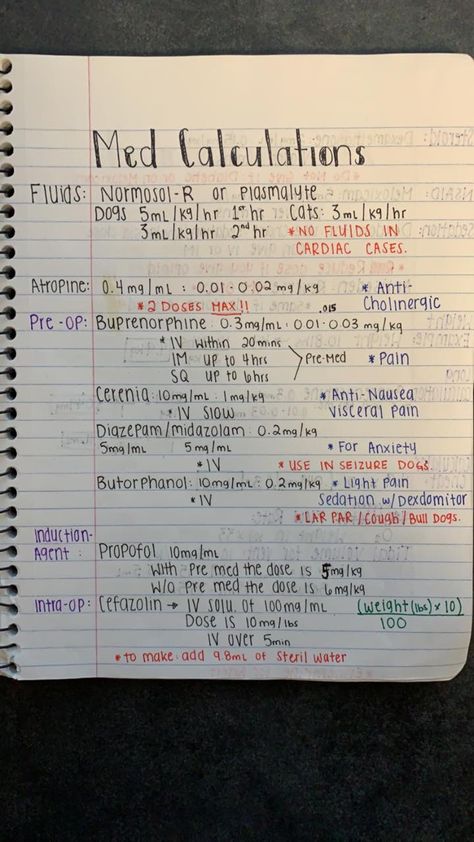 Med Calculations
Fluids: Normosol-R or Plasmalyte
Dogs 5mL/kg/hr 1st hr Cats: 3mL/kg/hr
3mL/kg/hr 2nd hr * NO FLUIDS IN
CARDIAC CASES.
Atropine: 0.4mg/mL : 0.01-0.02mg/kg * Anti-
* 2 DOSES MAX!! .015 Cholinergic
Pre-OP: Buprenorphine: 0.3mg/mL : 0.01-0.03 mg/kg
* IV within 20mins
IM up to 4hrs Pre-Med * Pain
SQ up to 6hrs
Cerenia: 10mg/mL : 1mg/kg * Anti-Nausea
* IV SLOW Visceral Pain
Diazepam/midazolam: 0.2mg/kg
5mg/mL 5mg/mL * For Anxiety
* IV * USE IN SEIZURE DOGS.
Butorphanol: 10mg/mL : 0.2mg/kg * Light Pain
* IV Sedation w/ Dexdomitor
* LAR PAR/Cough/Bull Dogs.
Induction-
Agent: Propofol 10mg/mL
With Pre med the dose is 5mg/kg
W/O Pre med the dose is 6mg/kg
Intra-OP: Cefazolin → IV solu. of 100mg/mL (weight(lbs) × 10)
Dose is 10mg/lbs 100
IV over 5min
* to make: add 9.8mL of Steril Water